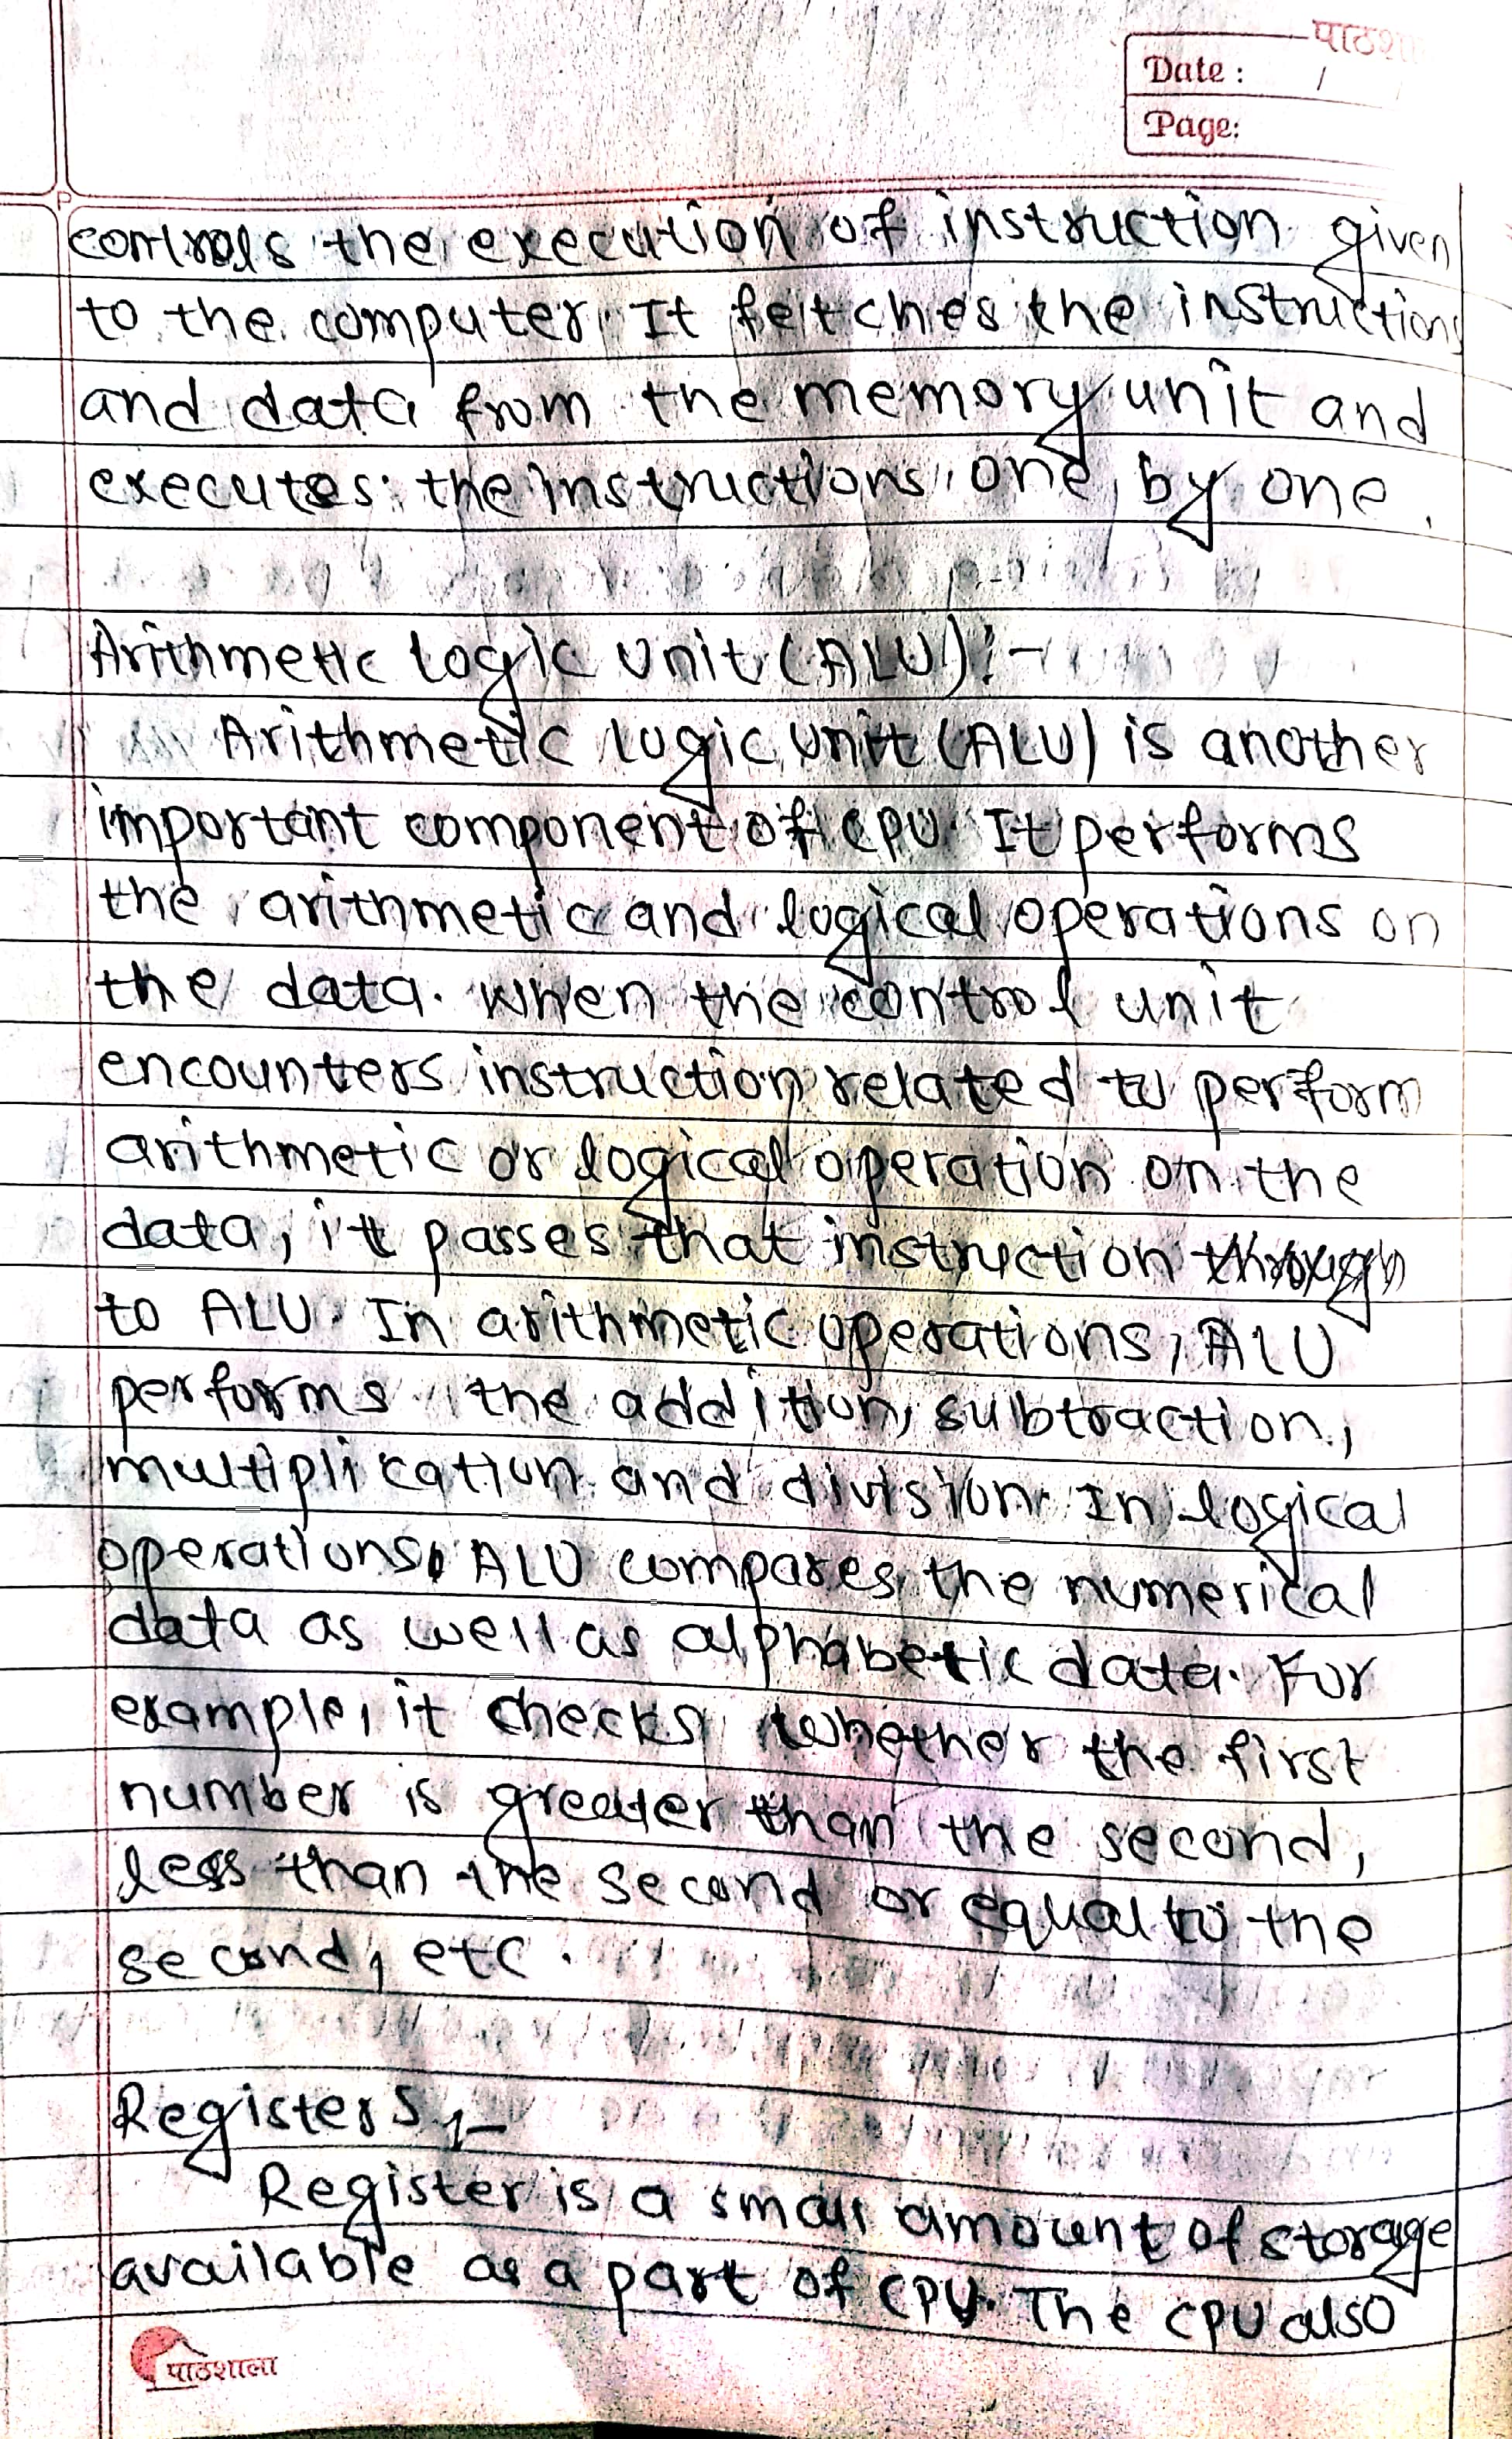 पाठशा
Date : /
Page:
P
controls the execution of instruction given
to the computer. It fetches the instructions
and data from the memory unit and
executes the instructions one by one.
Arithmetic Logic Unit (ALU):-
Arithmetic logic unit (ALU) is another
important component of CPU. It performs
the arithmetic and logical operations on
the data. When the control unit
encounters instruction related to perform
arithmetic or logical operation on the
data, it passes that instruction through
to ALU. In arithmetic operations, ALU
performs the addition, subtraction,
multiplication and division. In logical
operations, ALU compares the numerical
data as well as alphabetic data. For
example, it checks whether the first
number is greater than the second,
less than the second or equal to the
second, etc.
Registers :-
Register is a small amount of storage
available as a part of CPU. The CPU also
पाठशाला